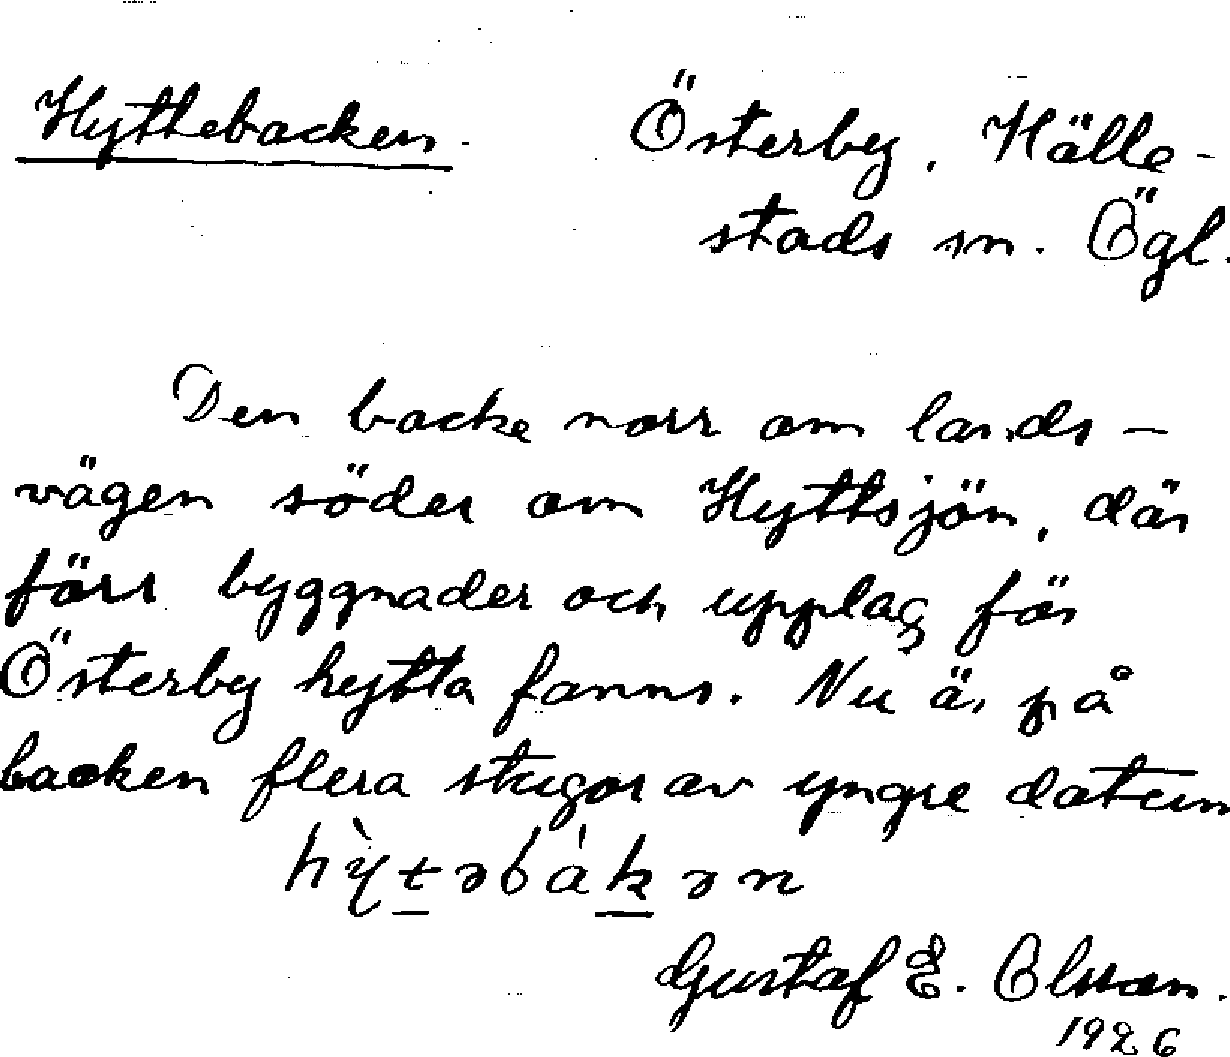 Hyttebacken. Österby, Hälle-
stads sn. Ögl.
Den backe norr om lands-
vägen söder om Hyttsjön, där
förr byggnader och upplag för
Österby hytta fanns. Nu är på
backen flera stugor av yngre datum
hỳtəbákən
Gustaf E. Olsson.
1926